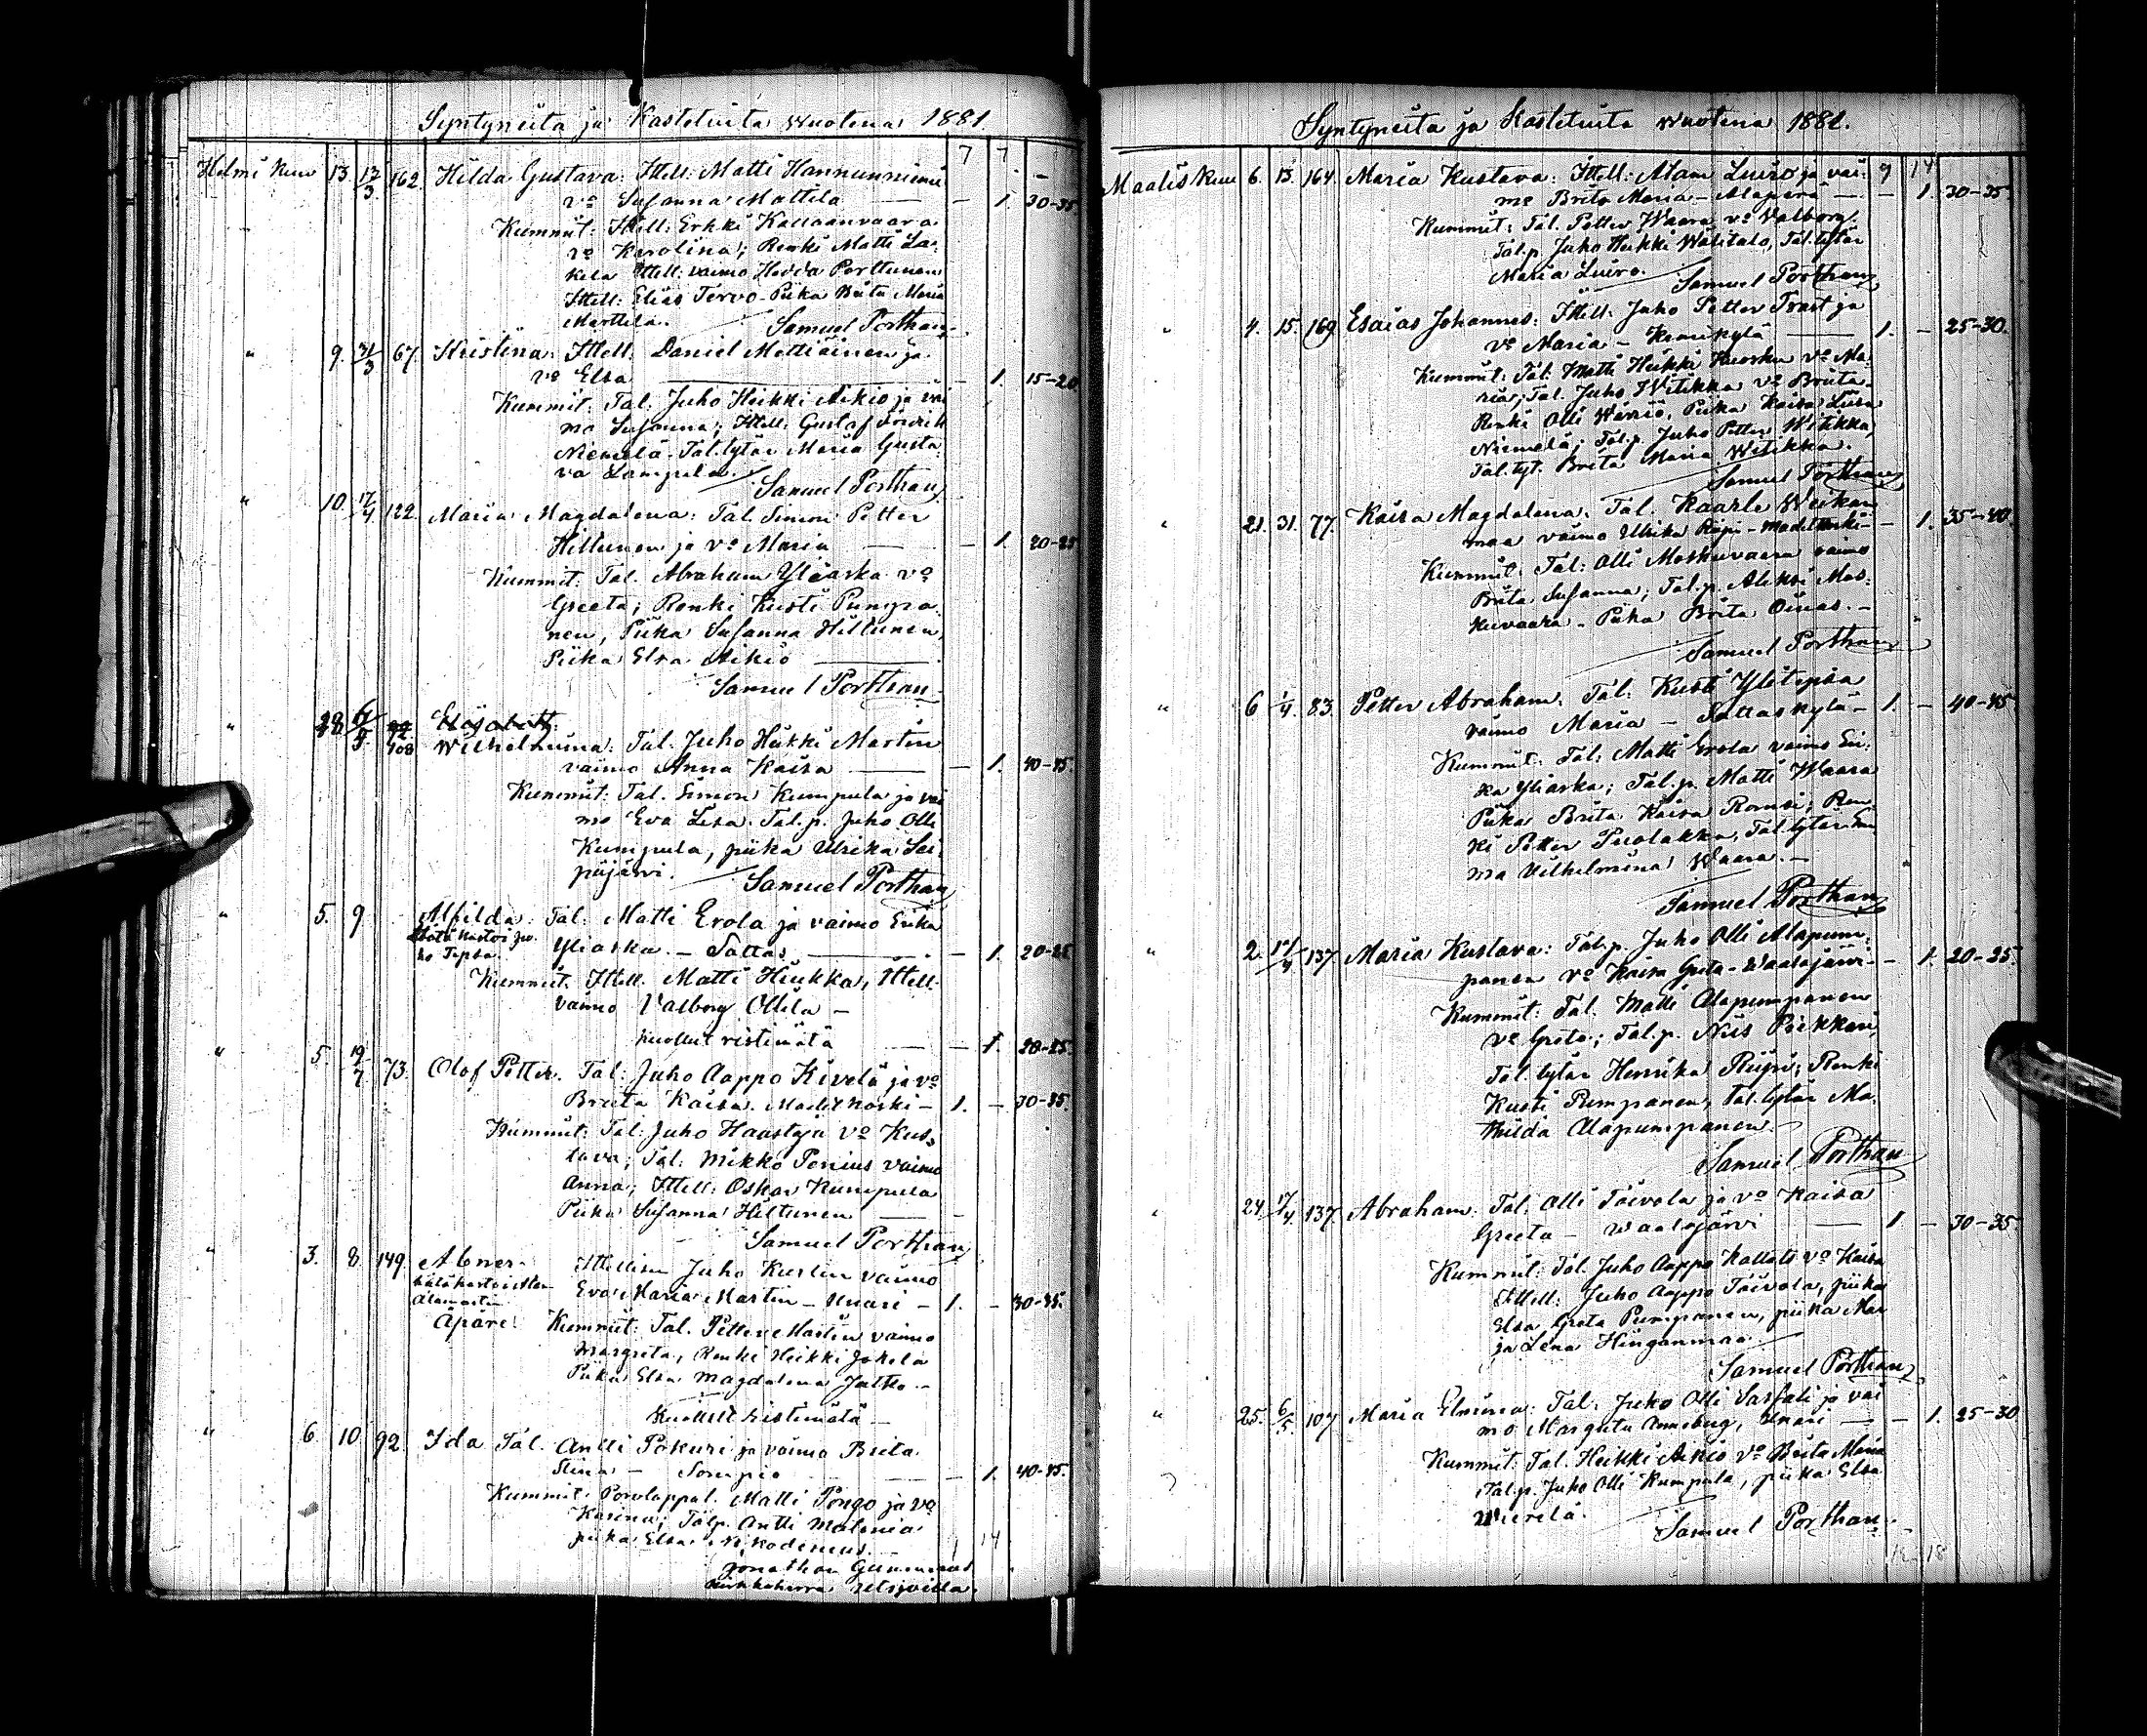 Syntyneitä ja Kastetuita wuotena 1881.
7 7. -
Helmi kuu 13. 13/3 162. Hilda Gustava: Ittell: Matti Hannunniemi
vo Susanna Mattila — - 1. 30-35
Kummit: Ittell: Erkki Kallaanvaara
vo Karolina; Renki Matti La-
kela Ittell: vaimo Hedda Porttunen
Ittell: Elias Tervo - Piika Brita Maria
Marttila.
Samuel Porthan
" 9. 31/3 67. Kristina: Ittell: Daniel Mettiäinen ja
vo Elsa — - 1. 15-20
Kummit: Tal: Juho Heikki Aikio ja vai
mo Susanna; Ittell: Gustaf
Niemelä - Tal. tytär Maria Gusta
va Lampela.
Samuel Porthan
" 10. 17/4 122. Maria Magdalena: Tal. Simon Petter
Hiltunen ja vo Maria — - 1. 20-25
Kummit: Tal. Abraham Yliaska vo
Greeta; Renki Kusti Pumpa
nen, Piika Susanna Hiltunen,
Piika Elsa Aikio —
Samuel Porthan
" 28 6/5 108 Elisabett
Wilhelmina: Tal. Juho Heikki Martin
vaimo Anna Kaisa — - 1. 40-45.
Kummit: Tal. Simon Kumpula ja vai
mo Eva Lisa. Tal. p. Juho Olli
Kumpula, piika Ulrika Sei
piäjärvi.
Samuel Porthan
" 5. 9 Alfilda: Tal: Matti Erola ja vaimo Erika
Hätä kastoi Ju
ho Tepsa. Yliaska. - Sattas — - 1. 20-25
Kummit. Ittell. Matti Heikka, Ittell
vaimo Valborg Ollila -
kuollut ristimätä — - 1. 20-25.
" 5. 19/7 73. Olof Petter. Tal: Juho Aappo Kivelä ja vo
Briita Kaisa. Madetkoski - 1. - 30-35.
Kummit: Tal: Juho Haastaja vo Kus-
tava; Tal: Mikko Ponius vaimo
Anna; Ittell: Oskar Kumpula
Piika Susanna Hiltunen —
Samuel Porthan
" 3. 8. 149. Abner - Ittellinen Juho Kustin vaimo
hätäkastoi
Alamartin Eva Maria Martin - Unari - 1. - 30-35.
Apare. Kummit: Tal. Petter Martin vaimo
Margreta, Renki Heikki Jokela
Piika Elsa Magdalena Jatko. -
Kuollut ristimätä -
" 6. 10 92. Ida Tal. Antti Pokuri ja vaimo Brita
Stina - Sompio — - 1. 40-45.
Kummit: Porolappal. Matti Pongo ja vo
Karina; Talp. Antti Malonia
piika Elsa Nikodemus. - 14
Jonathan Gummerus
kirkkoherra Utsjoella.
Syntyneitä ja Kastetuita wuotena 1881.
Maalis kuu 6. 13. 164. Maria Kustava: Ittell: Alam Luiro ja vai- 9 14
mo Brita Maria - Alaperä — - 1. 30-35.
Kummit: Tal. Petter Waara vo Valborg.
Tal. p. Juho Heikki Wälitalo, Tal. tytär
Maria Luiro.
Samuel Porthan
" 4. 15. 169. Esaias Johannes: Ittell. Juho Petter Trast ja
vo Maria - Kemikylä — 1. - 25-30.
Kummit: Tal: Matti Heikki Kuosku vo Ma-
ria; Tal. Juho Witikka vo Briita -
Renki Olli Warrio, Piika Kaisa Liisa
Niemelä; Tal. p. Juho Petter Witikka,
Tal. tyt. Brita Maria Witikka.
Samuel Porthan
" 21. 31. 77. Kaisa Magdalena. Tal. Kaarle Weikan
maa vaimo Ulrika Riipi - Madetkoski - - 1. 35-40.
Kummit: Tal: Olli Moskuvaara vaimo
Brita Susanna; Tal. p. Aleksi Mos-
kuvaara - Piika Brita Oinas. -
Samuel Porthan
" 6 1/4. 83. Petter Abraham. Tal: Kusti Ylitepsa
vaimo Maria - Sattaskylä - 1. - 40-45.
Kummit: Tal: Matti Erola vaimo Eri-
ka Yliaska; Tal. p. Matti Waara
Piika Brita Kaisa Romsi; Ren
ki Petter Puolakka, Tal. tytär Em
ma Vilhelmina Waara. -
Samuel Porthan
" 2. 17/4 137 Maria Kustava: Tal. p. Juho Olli Alapum-
panen vo Kaisa Greta - Waalajärvi - - 1. 20-25.
Kummit: Tal. Matti Alapumpanen
vo Greta; Tal. p. Niis Poikkari,
Tal. tytär Henrika Riipi; Renki
Kusti Pumpanen, Tal. tytär Ma-
thilda Alapumpanen -
Samuel Porthan
" 24. 17/4. 137. Abraham: Tal. Olli Toivola ja vo Kaisa
Greeta - Waalajärvi — 1 - 30-35.
Kummit: Tal. Juho Aappo Kallat vo Kaisa
Ittell: Juho Aappo Toivola, piika
Elsa Greta Pumpanen, piika Mar
ja Lena Hinganmaa.
Samuel Porthan
" 25. 6/5. 107 Maria Elmina: Tal. Juho Olli Sarsali ja vai
mo Margreta Anneberg, Unari — - 1. 25-30
Kummit: Tal. Heikki Aikio vo Brita Maria
Tal. p. Juho Olli Kumpula, piika Elsa
Wierelä.
Samuel Porthan.
18